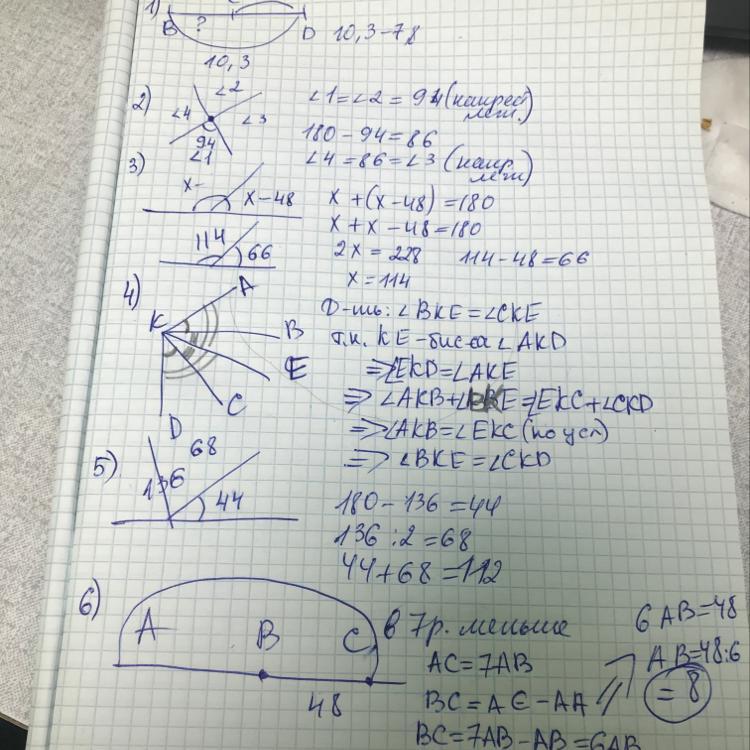 1)
B ? D 10,3-78
10,3
2) ∠2
∠4 ∠3
94
∠1
∠1=∠2=94 (напрес
леж.)
180-94=86
∠4=86=∠3 (напр.
леж)
3)
x- x-48
x+(x-48)=180
x+x-48=180
114 66
2x=228 114-48=66
x=114
4)
K A B E C D
Д-ть: ∠BKE=∠CKE
т.к. KE-бис-са ∠AKD
⇒∠EKD=∠AKE
⇒ ∠AKB+∠BKE=∠EKC+∠CKD
⇒∠AKB=∠EKC (по усл)
⇒ ∠BKE=∠CKD
5) 68
136 44
180-136=44
136:2=68
44+68=112
6)
A B C
48
в 7р. меньше
AC=7AB
BC=AC-AA
BC=7AB-AB=6AB
6AB=48
AB=48:6
=8